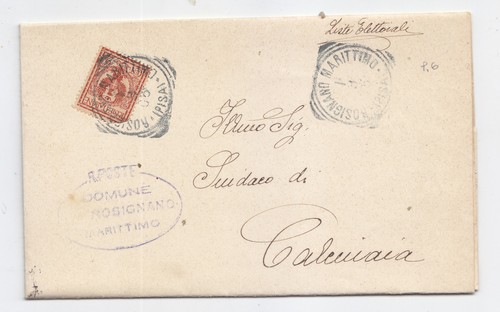 Liste Elettorali
ROSIGNANO MARITTIMO
(PISA)
ROSIGNANO MARITTIMO
(PISA)
Illmo Sig.
Sindaco di
Calcinaia
R. POSTE
COMUNE
ROSIGNANO
MARITTIMO